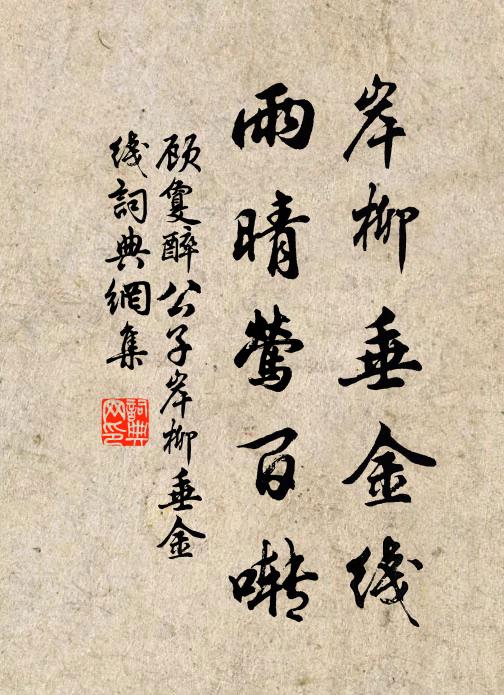 岸柳垂金线
雨晴莺百啭
顾敻醉公子岸柳垂金
线词典网集
词典网印